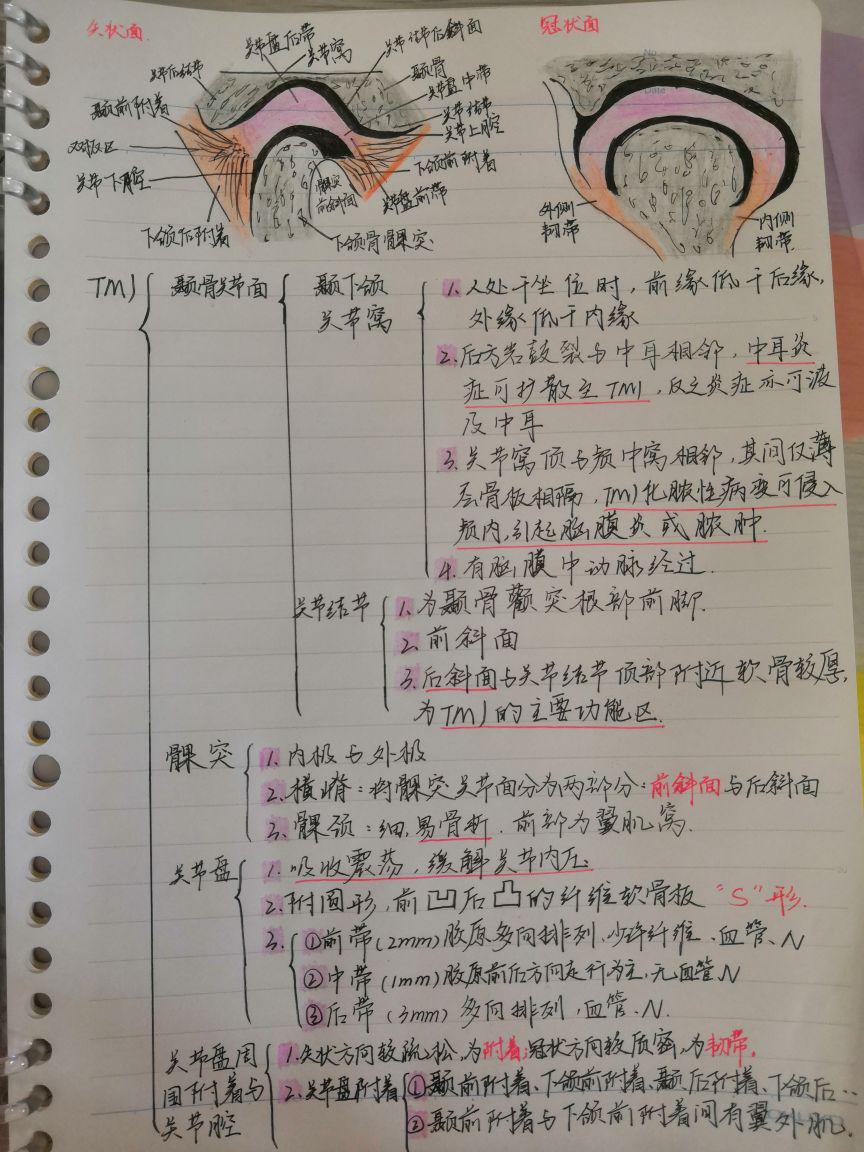 矢状面
冠状面
关节盘后带
关节窝
关节结节后斜面
关节后结节
颞骨
关节盘中带
颞前附着
关节结节
关节上腔
双板区
关节下腔
下颌前附着
髁突
前斜面
关节盘前带
下颌后附着
下颌骨髁突
外侧
韧带
内侧
韧带
TMJ
颞骨关节面
颞下颌
关节窝
1. 人处于坐位时，前缘低于后缘，
外缘低于内缘
2. 后方岩鼓裂与中耳相邻，中耳炎
症可扩散至TMJ，反之炎症亦可波
及中耳
3. 关节窝顶与颅中窝相邻，其间仅薄
层骨板相隔，TMJ化脓性病变可侵入
颅内，引起脑膜炎或脓肿.
4. 有脑膜中动脉经过.
关节结节
1. 为颞骨颧突根部前脚.
2. 前斜面
3. 后斜面与关节结节顶部附近软骨较厚，
为TMJ的主要功能区.
髁突
1. 内极与外极
2. 横嵴：将髁突关节面分为两部分：前斜面与后斜面
3. 髁颈：细，易骨折. 前部为翼肌窝.
关节盘
1. 吸收震荡，缓解关节内压
2. 椭圆形，前凹后凸的纤维软骨板 "S"形.
3. ①前带(2mm)胶原多向排列，少许纤维、血管、N
②中带(1mm)胶原前后方向走行为主，无血管N
③后带(3mm) 多向排列，血管、N.
关节盘周
围附着与
关节腔
1. 矢状方向较疏松，为附着；冠状方向较质密，为韧带.
2. 关节盘附着 ①颞前附着、下颌前附着、颞后附着、下颌后…
②颞前附着与下颌前附着间有翼外肌.